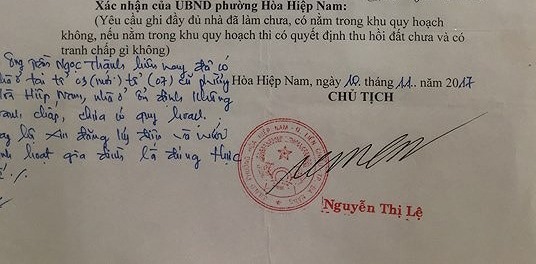 Xác nhận của UBND phường Hòa Hiệp Nam:
(Yêu cầu ghi đầy đủ nhà đã làm chưa, có nằm trong khu quy hoạch
không, nếu nằm trong khu quy hoạch thì có quyết định thu hồi đất chưa và có
tranh chấp gì không)
Ông Trần Ngọc Thành hiện nay đã có
nhà ở tại tổ 03 (mới) tổ (07) cũ phường
Hiệp Nam, nhà ở ổn định không
tranh chấp, chưa có quy hoạch.
Hòa Hiệp Nam, ngày 10 tháng 11 năm 2017
CHỦ TỊCH
điện và nước
hoạt gia đình là đúng thực
Nguyễn Thị Lệ